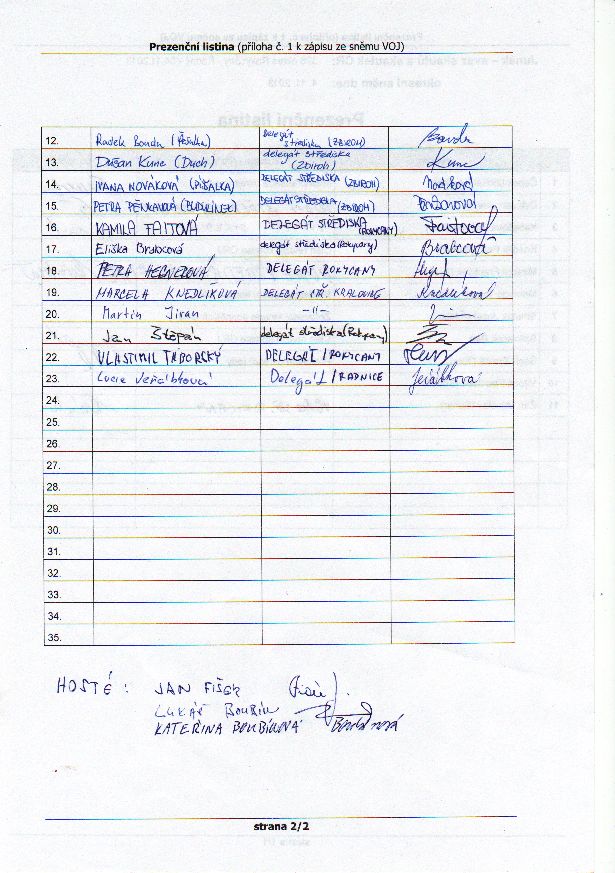 Prezenční listina (příloha č. 1 k zápisu ze sněmu VOJ)
12. Radek Bonda delegát střediska (ZBIROH)
13. Dušan Kunc (Duch) delegát střediska (Zbiroh) Kunc
14. IVANA NOVÁKOVÁ (PÍŠALKA) DELEGÁT STŘEDISKA (ZBIROH)
15. PETRA DELEGÁT STŘEDISKA (ZBIROH)
16. KAMILA FAITOVÁ DELEGÁT STŘEDISKA (ROKYCANY) Faitová
17. Eliška Brabcová delegát střediska (Rokycany) Brabcová
18. PETRA DELEGÁT ROKYCANY
19. MARCELA KNEDLÍKOVÁ DELEGÁT STŘ. KRALOVICE Knedlíková
20. Martin Jiran -"-
21. Jan Štěpán delegát střediska (Rokycany)
22. VLASTIMIL TABORSKÝ DELEGÁT / ROKYCANY
23. Lucie Delegát / RADNICE
24.
25.
26.
27.
28.
29.
30.
31.
32.
33.
34.
35.
HOSTÉ : JAN FIŠER
LUKÁŠ BOUBÍN
KATEŘINA BOUBÍNOVÁ
strana 2/2